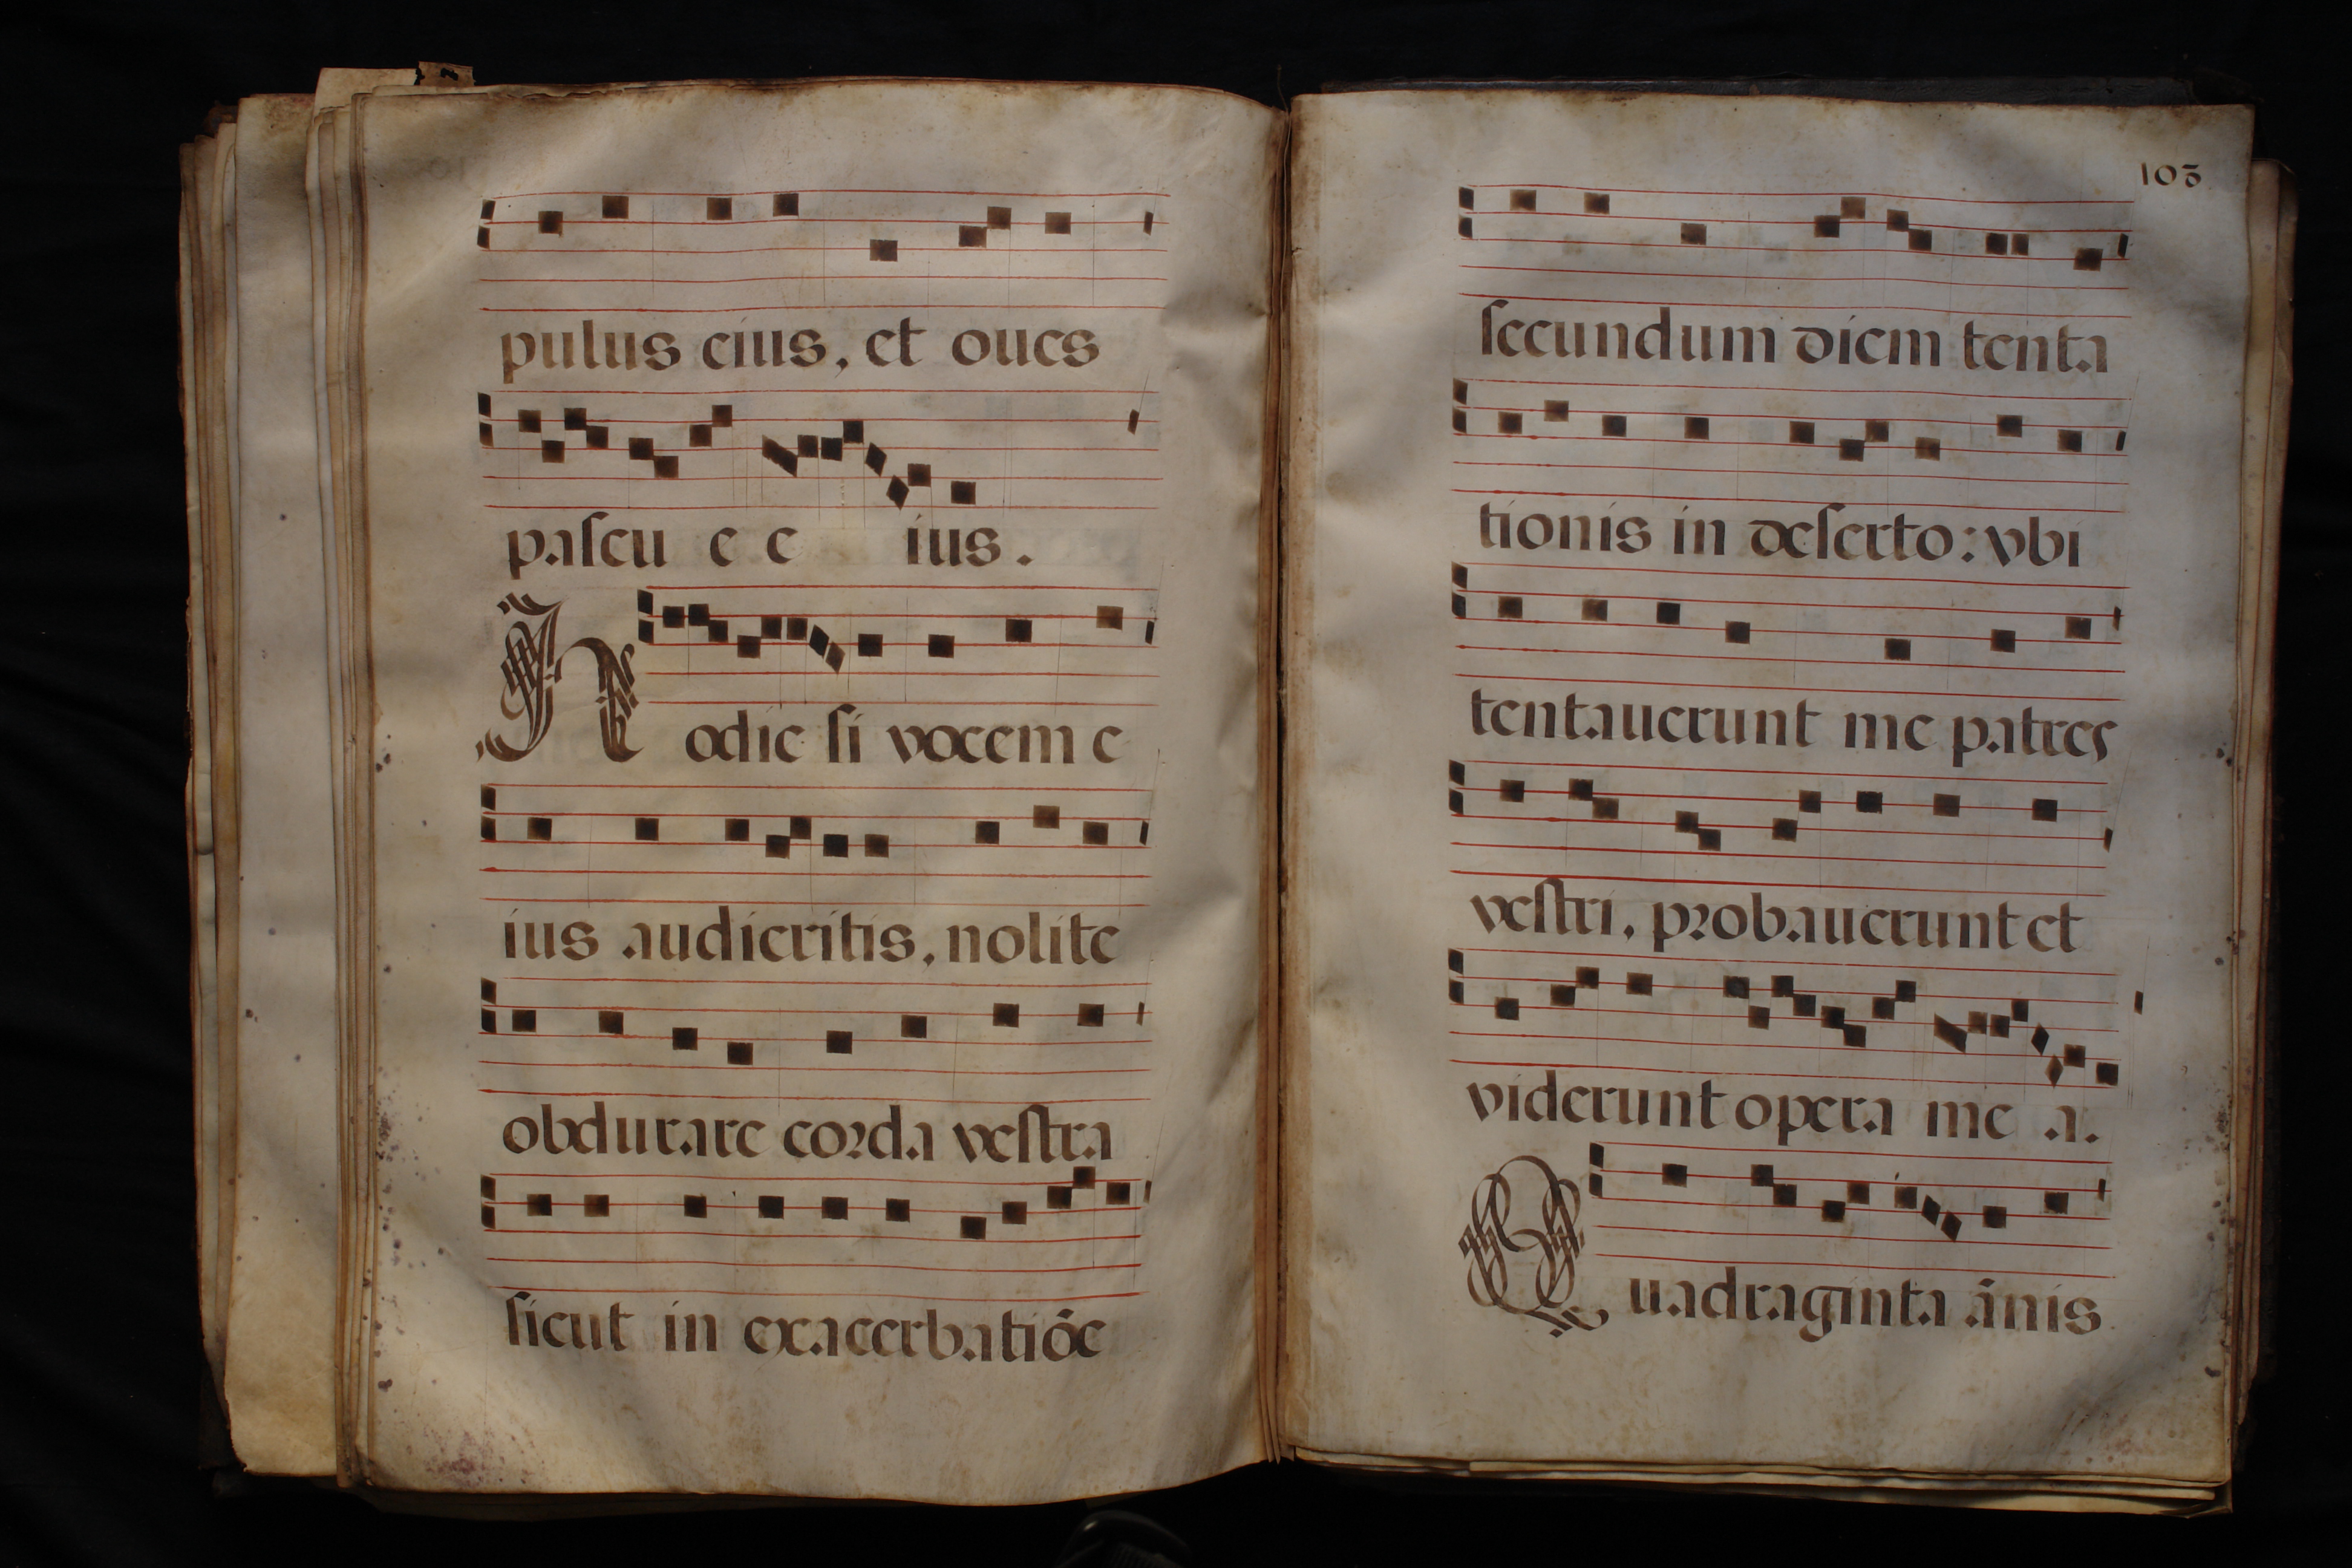 pulus eius, et oues
pascu e e ius.
Hodie si vocem e
ius audieritis, nolite
obdurare corda vestra
sicut in exacerbatiōe
103
secundum diem tenta
tionis in deserto: vbi
tentauerunt me patres
vestri, probauerunt et
viderunt opera me a.
Quadraginta ānis